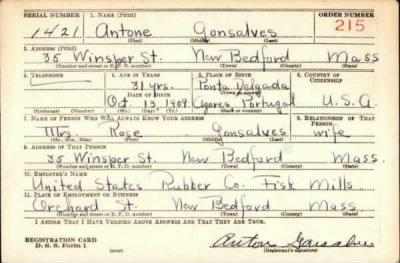 SERIAL NUMBER 1. NAME (Print) ORDER NUMBER
1421 Antone Gonsalves 215
(First) (Middle) (Last)
2. ADDRESS (Print)
35 Winsper St. New Bedford Mass
(Number and street or R. F. D. number) (Town) (County) (State)
3. TELEPHONE 4. AGE IN YEARS 5. PLACE OF BIRTH 6. COUNTRY OF CITIZENSHIP
31 yrs. Ponta Delgada
DATE OF BIRTH (Town or county)
Oct. 13, 1909 Azores, Portugal U.S.A.
(Exchange) (Number) (Mo.) (Day) (Yr.) (State or country)
7. NAME OF PERSON WHO WILL ALWAYS KNOW YOUR ADDRESS 8. RELATIONSHIP OF THAT PERSON
Mrs. Rose Gonsalves wife
(Mr., Mrs., Miss) (First) (Middle) (Last)
9. ADDRESS OF THAT PERSON
35 Winsper St. New Bedford Mass.
(Number and street or R. F. D. number) (Town) (County) (State)
10. EMPLOYER'S NAME
United States Rubber Co. Fisk Mills
11. PLACE OF EMPLOYMENT OR BUSINESS
Orchard St. New Bedford Mass
(Number and street or R. F. D. number) (Town) (County) (State)
I AFFIRM THAT I HAVE VERIFIED ABOVE ANSWERS AND THAT THEY ARE TRUE.
REGISTRATION CARD
D. S. S. Form 1 (over) Anton Gonsalves
(Registrant's signature)